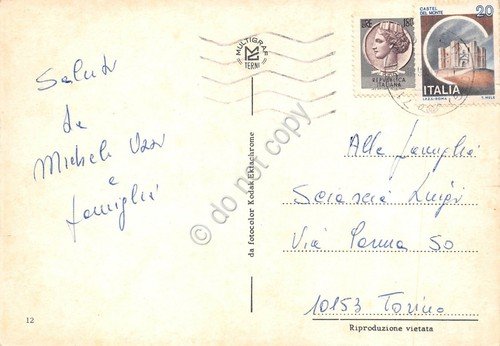 MULTIGRAF
TERNI
180
REPUBBLICA
ITALIANA
CASTEL
DEL MONTE
20
ITALIA
Saluti
da
Micheli
e
famiglia
Alla famiglia
Luigi
Via Parma 50
10153 Torino
da fotocolor Kodak Ektachrome
© do not copy
12
Riproduzione vietata